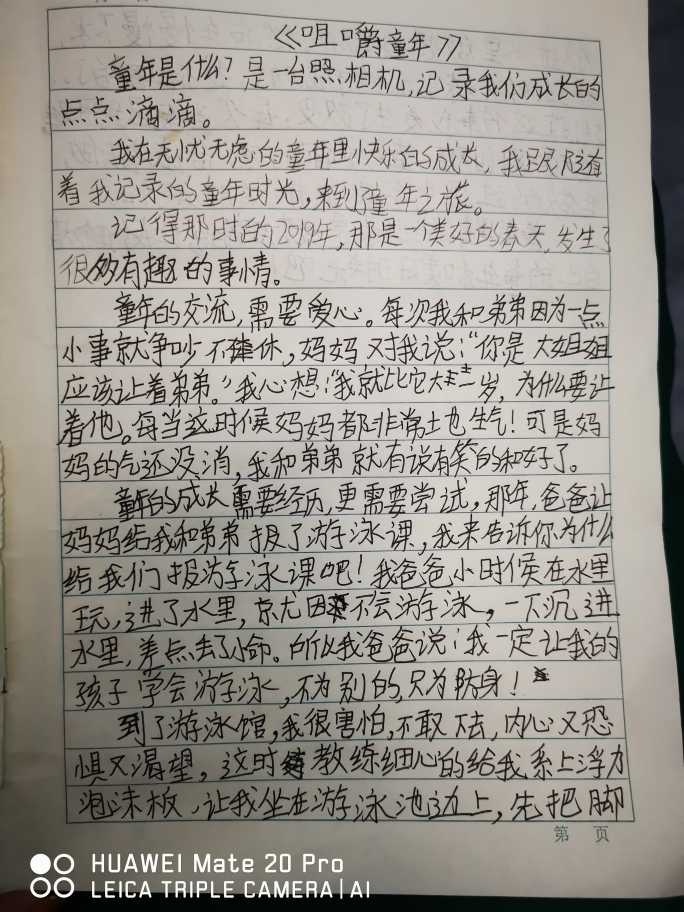 《咀嚼童年》
童年是什么?是一台照相机,记录我们成长的
点点滴滴。
我在无忧无虑的童年里快乐的成长,我正尾随着
着我记录的童年时光,来到童年之旅。
记得那时的2019年,那是一个美好的春天,发生了
很多有趣的事情。
童年的交流,需要爱心。每次我和弟弟因为一点
小事就争吵不休,妈妈对我说:"你是大姐姐
应该让着弟弟。"我心想:"我就比它大岁,为什么要让
着他。每当这时候妈妈都非常土也生气!可是妈
妈的气还没消,我和弟弟就有说有笑的和好了。
童年的成长需要经历,更需要尝试,那年,爸爸让
妈妈给我和弟弟报了游泳课,我来告诉你为什么
给我们报游泳课吧!我爸爸小时候在水里
玩,进了水里,就因不会游泳,一下沉进
水里,差点丢了小命。所以我爸爸说:我一定让我的
孩子学会游泳,不为别的,只为防身!
到了游泳馆,我很害怕,不敢下去,内心又恐
惧又渴望,这时教练细心的给我系上浮力
泡沫板,让我坐在游泳池边上,先把脚
第 页
HUAWEI Mate 20 Pro
LEICA TRIPLE CAMERA | AI